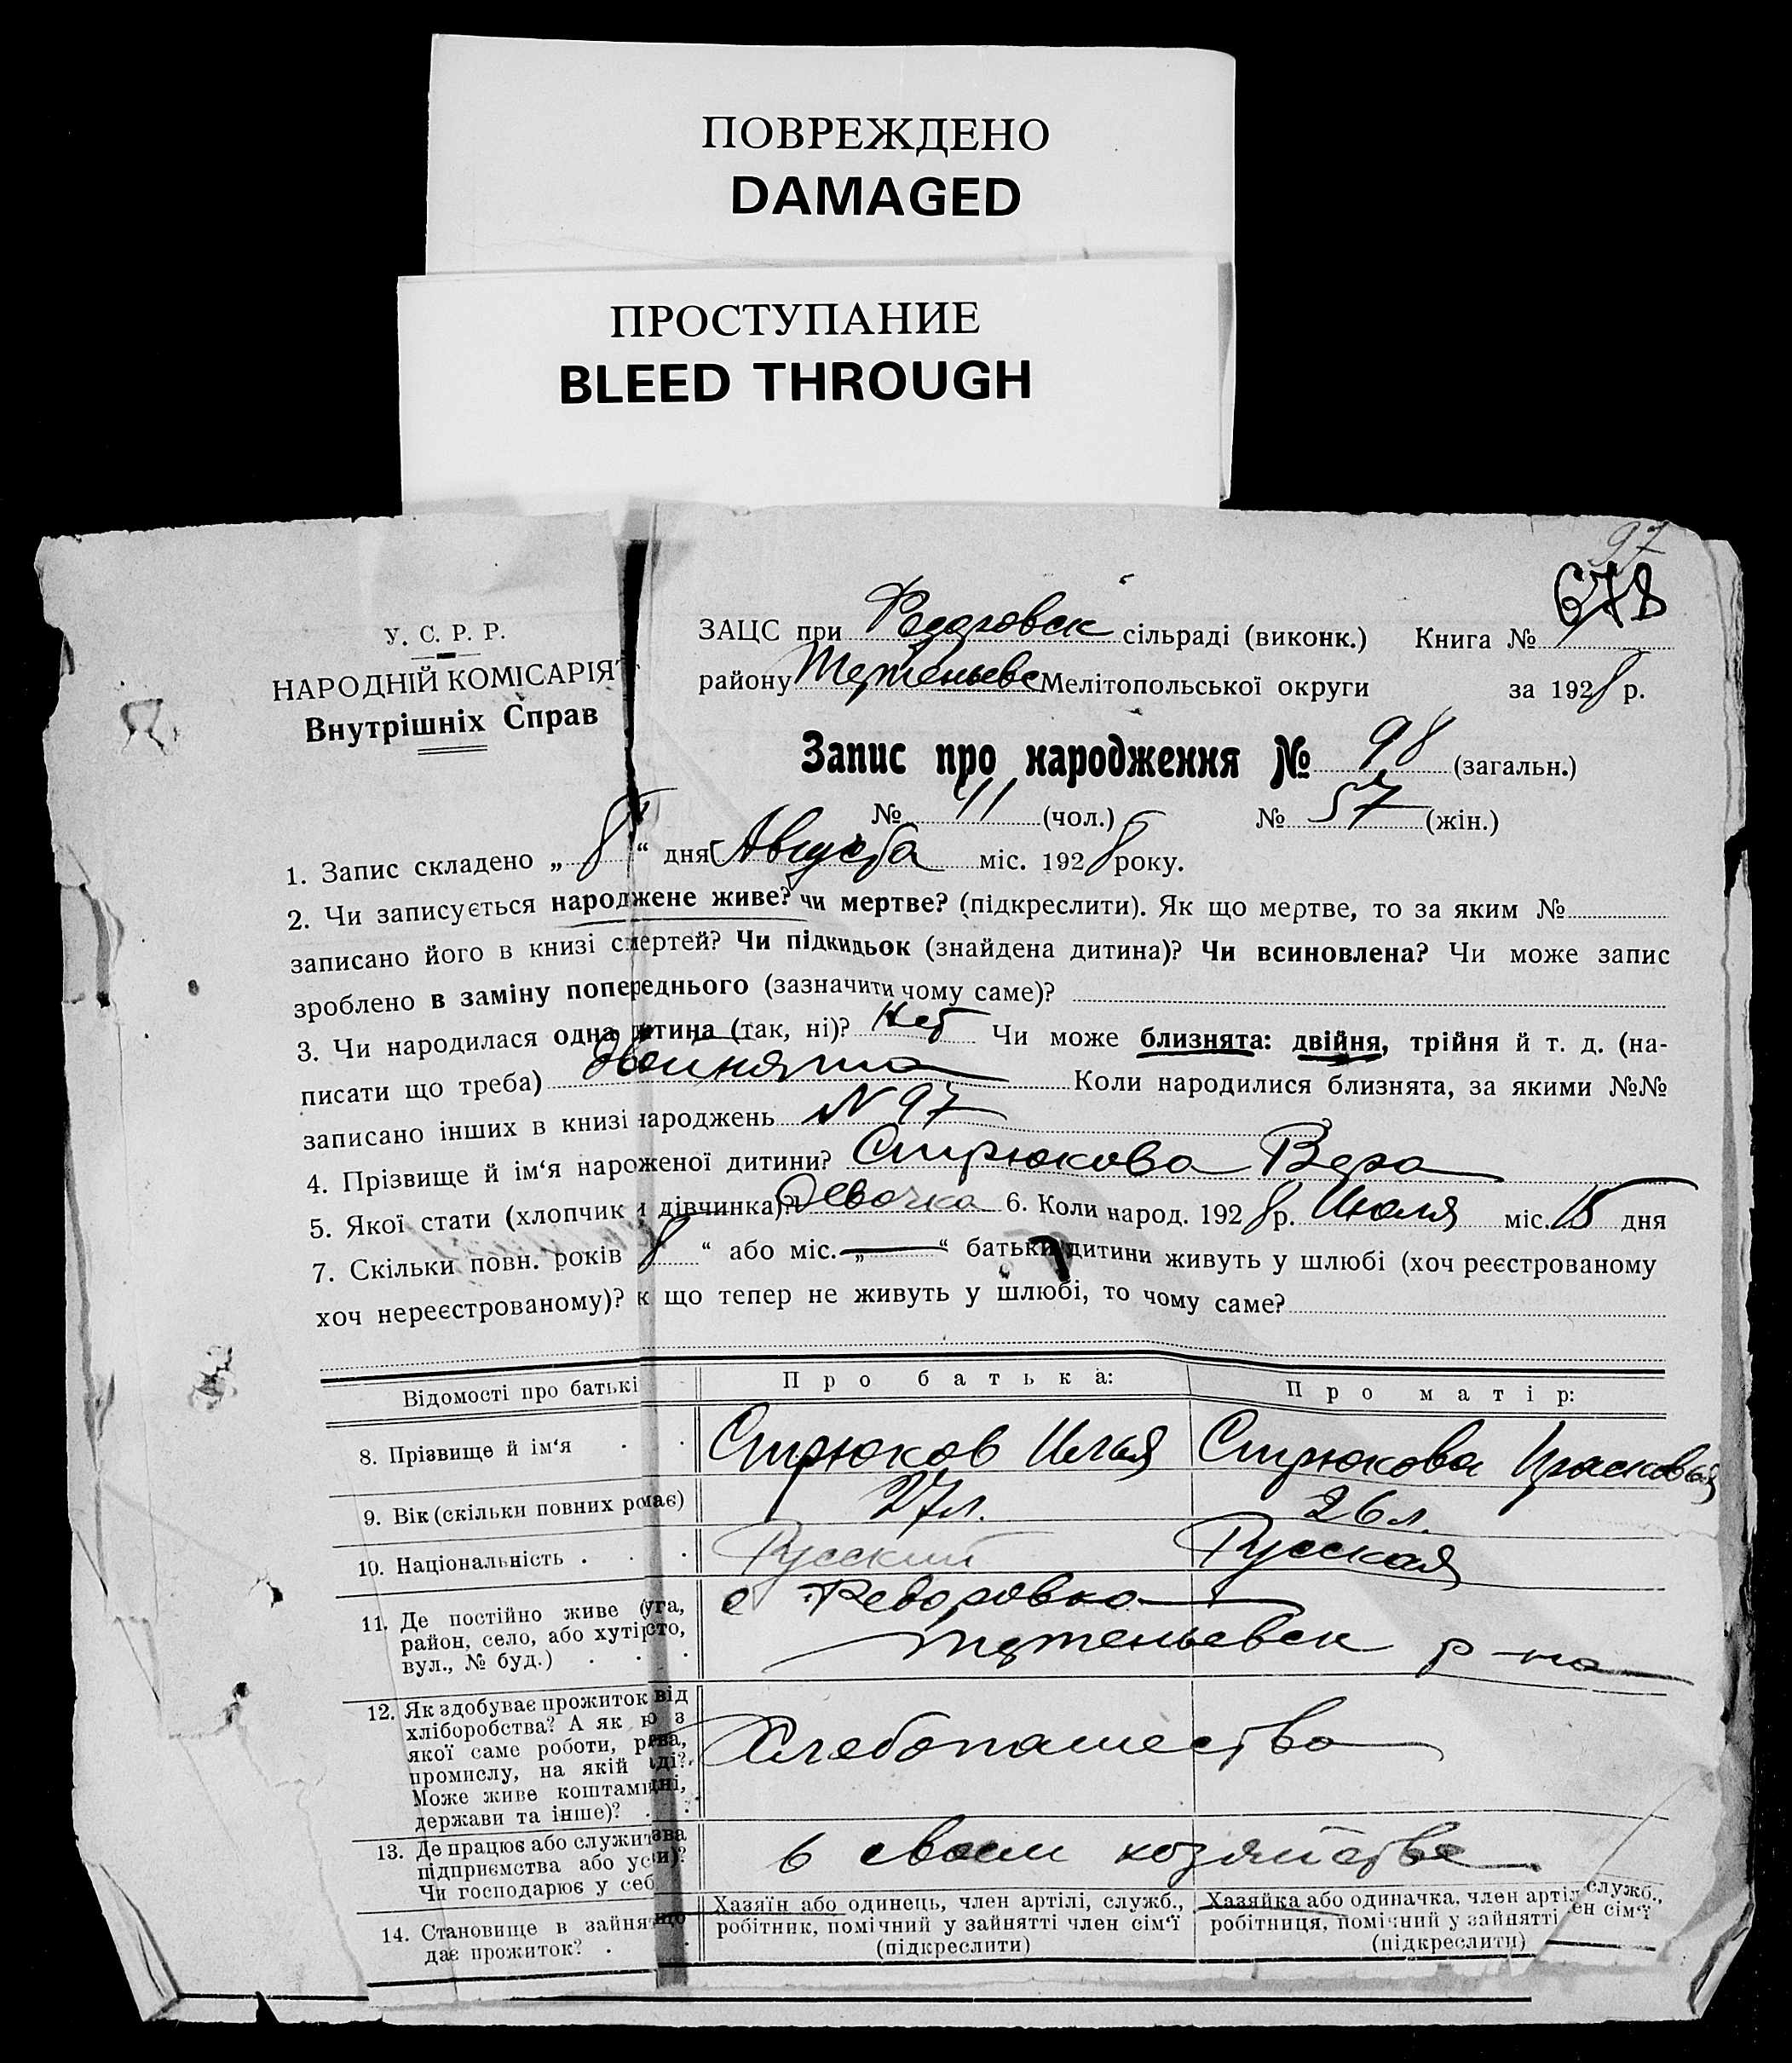 ПОВРЕЖДЕНО
DAMAGED
ПРОСТУПАНИЕ
BLEED THROUGH
97
678
У. С. Р. Р.
НАРОДНІЙ КОМІСАРІЯТ
Внутрішніх Справ
ЗАЦС при Федоровск сільраді (виконк.) Книга №
району Мелітопольської округи за 1928 р.
Запис про народження № 98 (загальн.)
№ 41 (чол.) № 57 (жін.)
1. Запис складено „ 8 “ дня Августа міс. 1928 року.
2. Чи записується народжене живе? чи мертве? (підкреслити). Як що мертве, то за яким №
записано його в книзі смертей? Чи підкидьок (знайдена дитина)? Чи всиновлена? Чи може запис
зроблено в заміну попереднього (зазначити чому саме)?
3. Чи народилася одна дитина (так, ні)? Нет Чи може близнята: двійня, трійня й т. д. (на-
писати що треба) двойнята Коли народилися близнята, за якими №№
записано інших в книзі народжень N 97
4. Прізвище й ім‘я нароженої дитини? Стрюкова Вера
5. Якої стати (хлопчик и дівчинка)? Девочка 6. Коли народ. 1928 р. Июля міс. 15 дня
7. Скільки повн. років 8 “ або міс. „ — “ батьки дитини живуть у шлюбі (хоч реєстрованому
хоч нереєстрованому)? к що тепер не живуть у шлюбі, то чому саме?
Відомості про батькі Про батька: Про матір:
8. Прізвище й ім‘я Стрюков Илья Стрюкова Прасковья
9. Вік (скільки повних ро має) 27 л. 26 л.
10. Національність Русский Русская
11. Де постійно живе (уга, с Федоровка
район, село, або хутір сто, р-на
вул., № буд.)
12. Як здобуває прожиток від
хліборобства? А як ю з
якої саме роботи, р ва, Хлебопашество
промислу, на якій ді?
Може живе коштами ні,
держави та інше)?
13. Де працює або служит ва
підприємства або ус и)? в своем хозяйстве
Чи господарює у себ
14. Становище в зайнят що Хазяїн або одинець, член артілі, служб., Хазяйка або одиначка, член артіл служб.,
дає прожиток? робітник, помічний у зайнятті член сім‘ї робітниця, помічний у зайнятті ен сім‘ї
(підкреслити) (підкреслити)